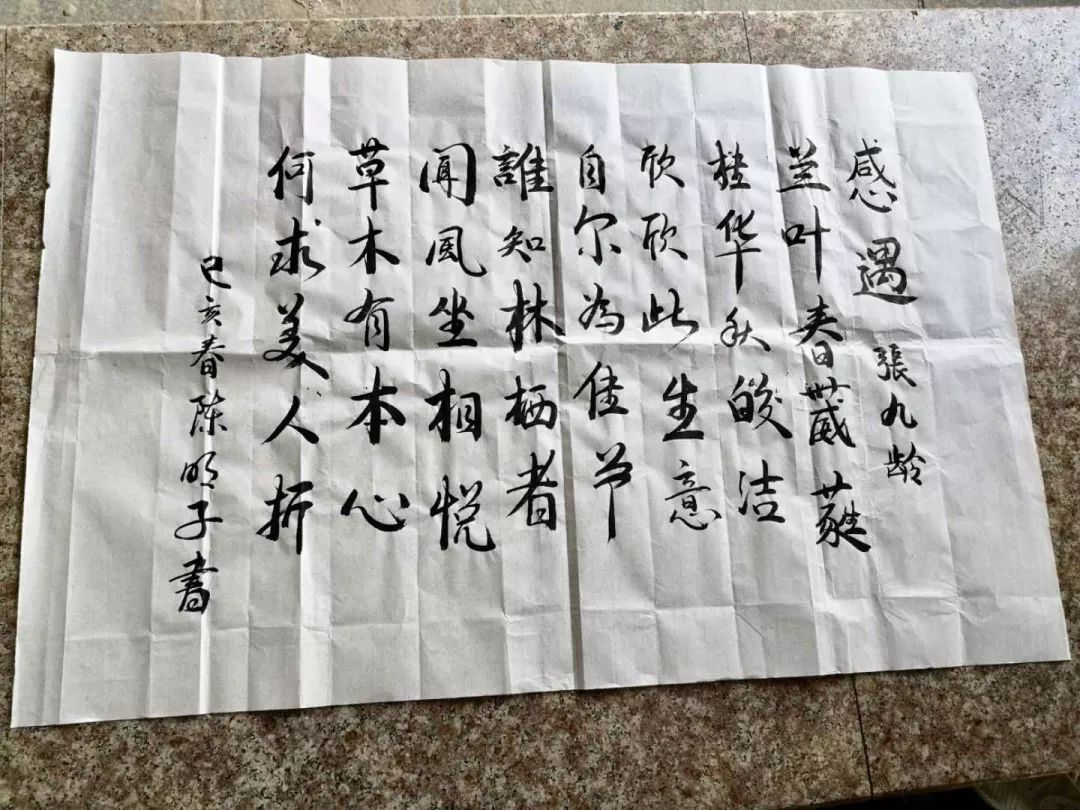 感遇 張九龄
兰叶春葳蕤
桂华秋皎洁
欣欣此生意
自尔为佳节
誰知林栖者
闻风坐相悦
草木有本心
何求美人折
己亥春陈明子書